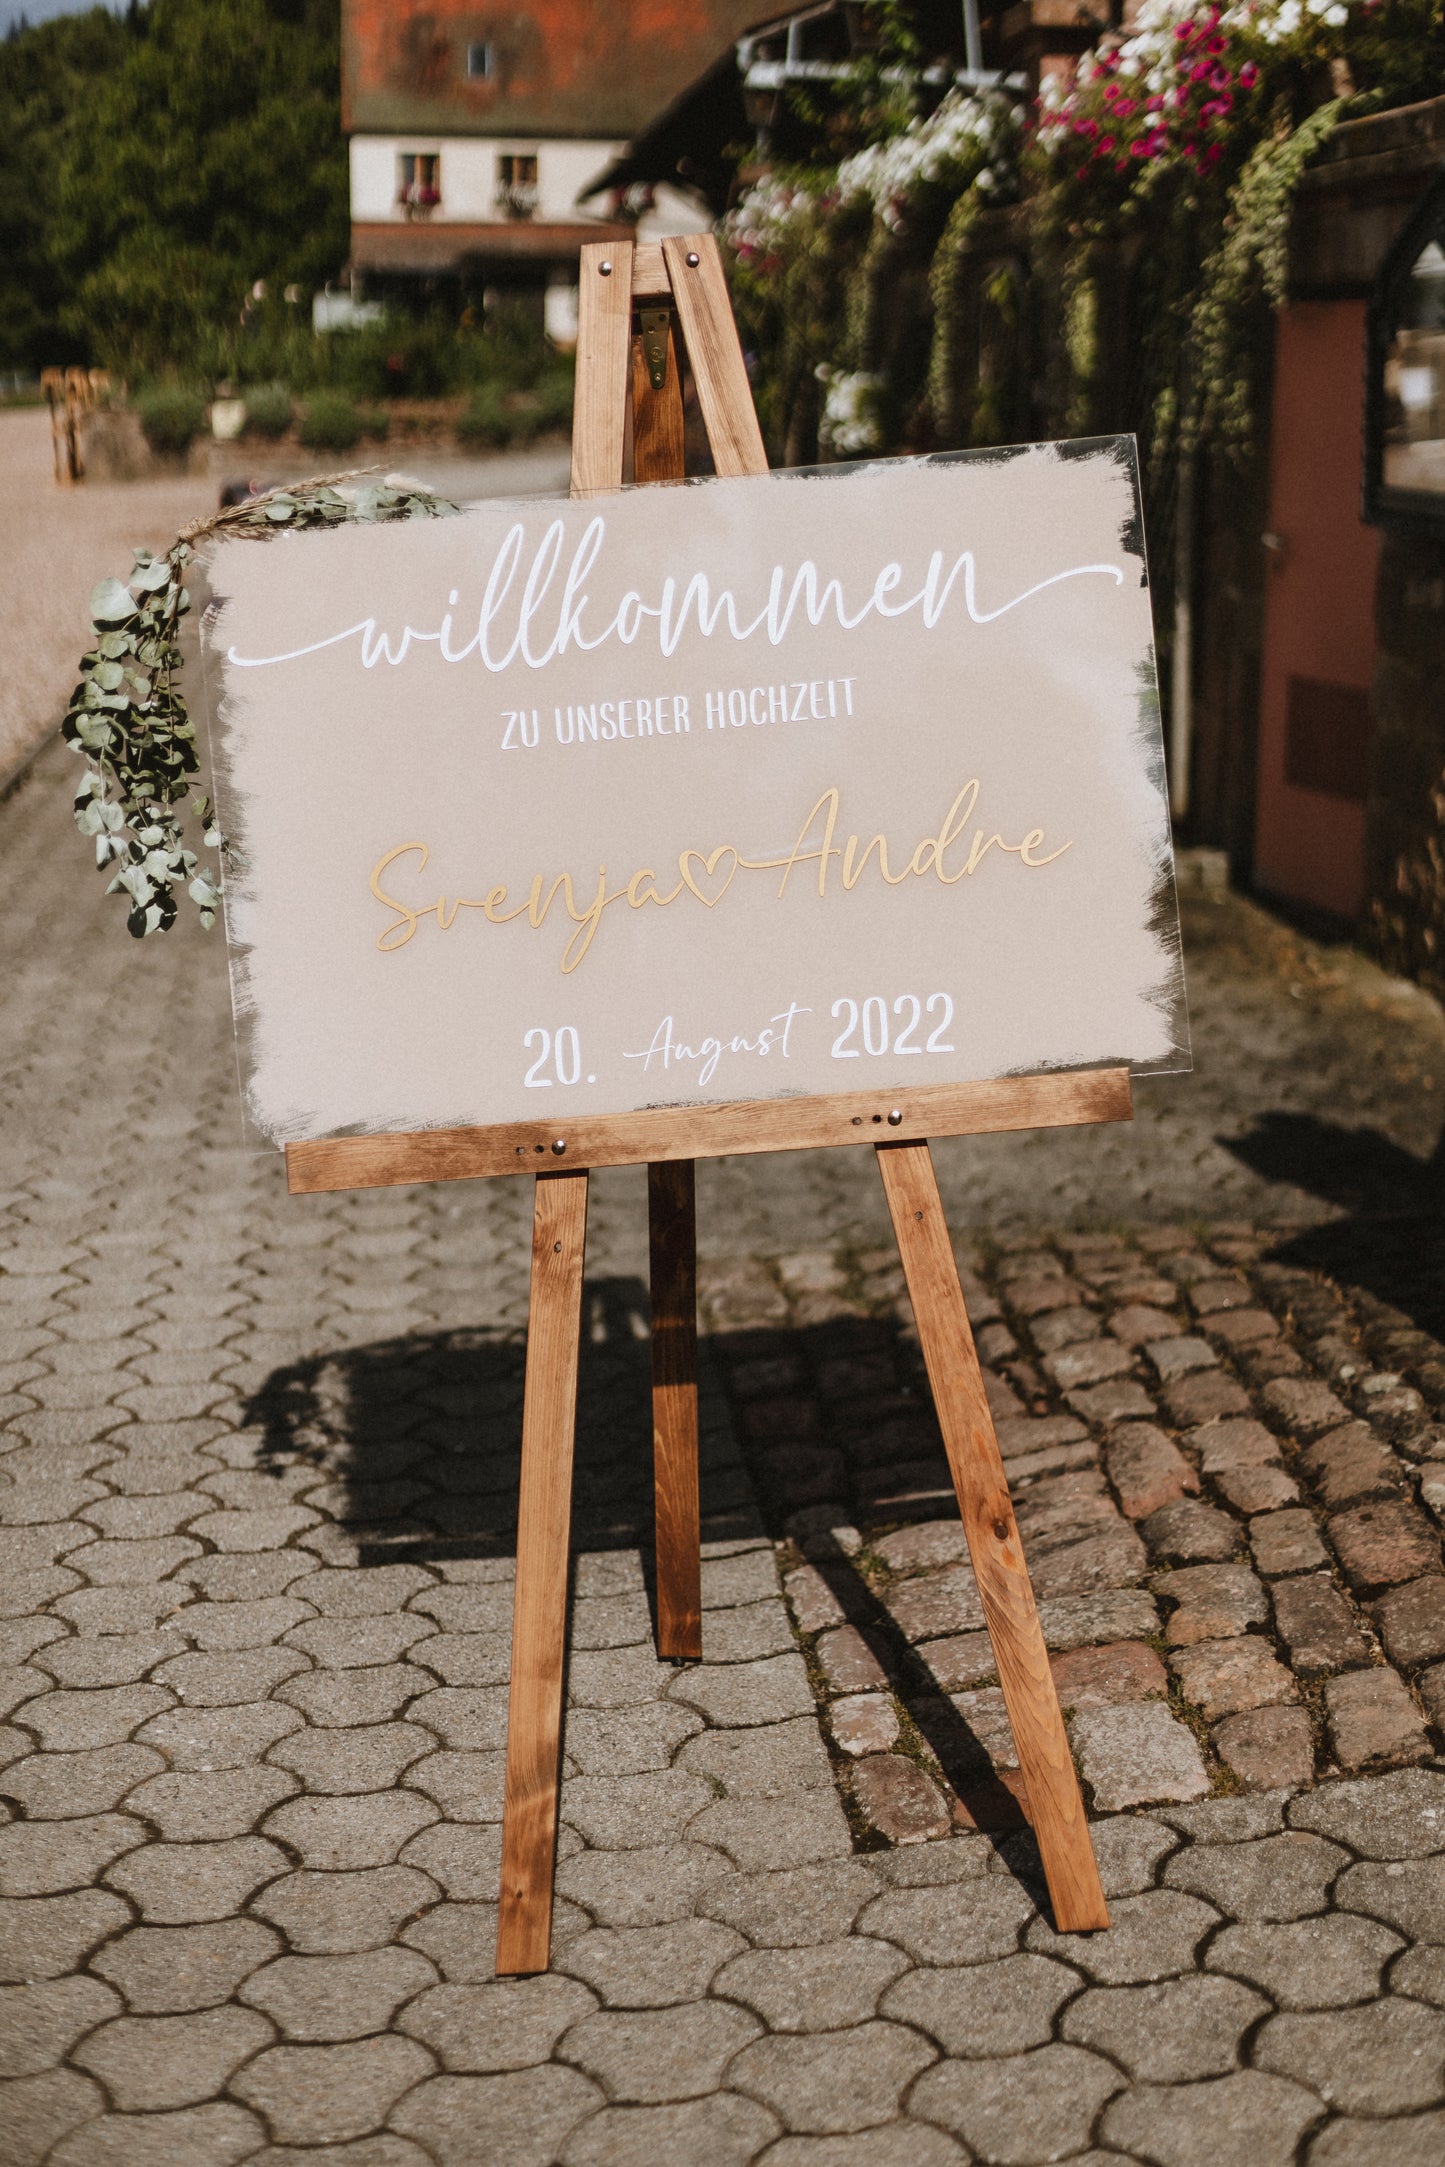 willkommen
ZU UNSERER HOCHZEIT
Svenja♡Andre
20. August 2022